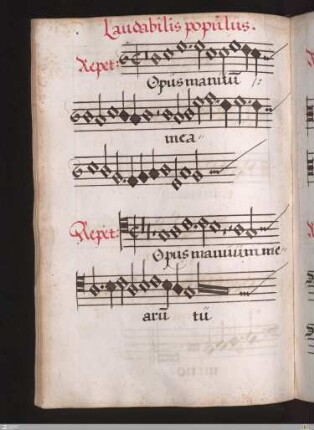 Laudabilis populus.
Repet:
Opus manuū
mea
Repet:
Opus manuum me
arū tū